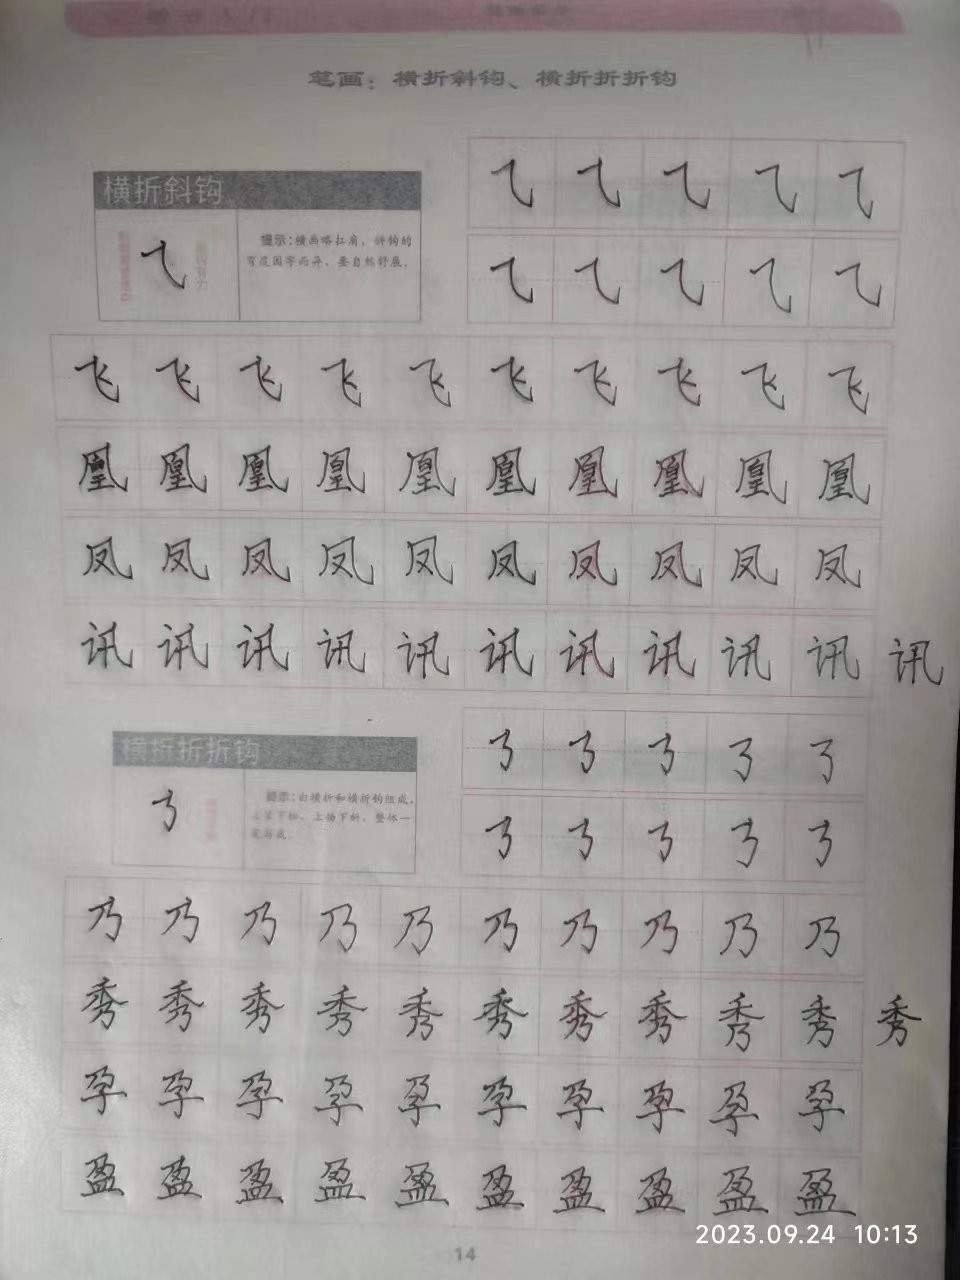 笔画：横折斜钩、横折折折钩
横折斜钩
提示：横画略扛肩，斜钩的
弯度因字而异，要自然舒展。
⺄ ⺄ ⺄ ⺄ ⺄ ⺄
⺄ ⺄ ⺄ ⺄ ⺄
飞 飞 飞 飞 飞 飞 飞 飞 飞 飞
凰 凰 凰 凰 凰 凰 凰 凰 凰 凰
凤 凤 凤 凤 凤 凤 凤 凤 凤 凤
讯 讯 讯 讯 讯 讯 讯 讯 讯 讯 讯
横折折折钩
提示：由横折和横折钩组成，
上斜下斜，整体一
㇡ ㇡ ㇡ ㇡ ㇡ ㇡
㇡ ㇡ ㇡ ㇡ ㇡
乃 乃 乃 乃 乃 乃 乃 乃 乃 乃
秀 秀 秀 秀 秀 秀 秀 秀 秀 秀 秀
孕 孕 孕 孕 孕 孕 孕 孕 孕 孕
盈 盈 盈 盈 盈 盈 盈 盈 盈 盈
2023.09.24 10:13
14